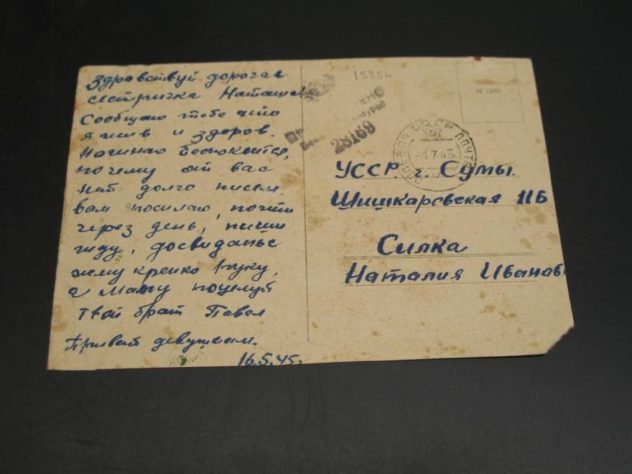 Здравствуй дорогая
сестричка Наташа!
Сообщаю тебе что
я жив и здоров.
Начинаю беспокоится,
почему от вас
нет долго писем,
вам посылаю, почти
через день, пиши
жду, досвиданье
жму крепко руку,
а Маму поцелуй
твой брат Павел
Привет девушкам.
16.5.45.
15856
28169
УССР г. Сумы.
Шишкаровская 11Б
Силка
Наталия Иванов